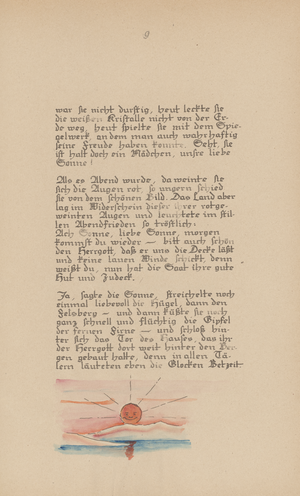 9
war sie nicht durstig, heut leckte sie
die weißen Kristalle nicht von der Er-
de weg, heut spielte sie mit dem Spie-
gelwerk, an dem man auch wahrhaftig
seine Freude haben konnte. Seht, sie
ist halt doch ein Mädchen, unsre liebe
Sonne!
Als es Abend wurde, da weinte sie
sich die Augen rot, so ungern schied
sie von dem schönen Bild. Das Land aber
lag im Widerschein dieser ihrer rotge-
weinten Augen und leuchtete im stil-
len Abendfrieden so tröstlich:
Ach Sonne, liebe Sonne, morgen
kommst du wieder — bitt auch schön
den Herrgott, daß er uns die Decke läßt
und keine lauen Winde schickt, denn
weißt du, nun hat die Saat ihre gute
Hut und Zudeck.
Ja, sagte die Sonne, streichelte noch
einmal liebevoll die Hügel, dann den
Feloberg — und dann küßte sie noch
ganz schnell und flüchtig die Gipfel
der fernen Firne — und schloß hin-
ter sich das Tor des Hauses, das ihr
der Herrgott dort weit hinter den Ber-
gen gebaut hatte, denn in allen Tä-
lern läuteten eben die Glocken Betzeit.